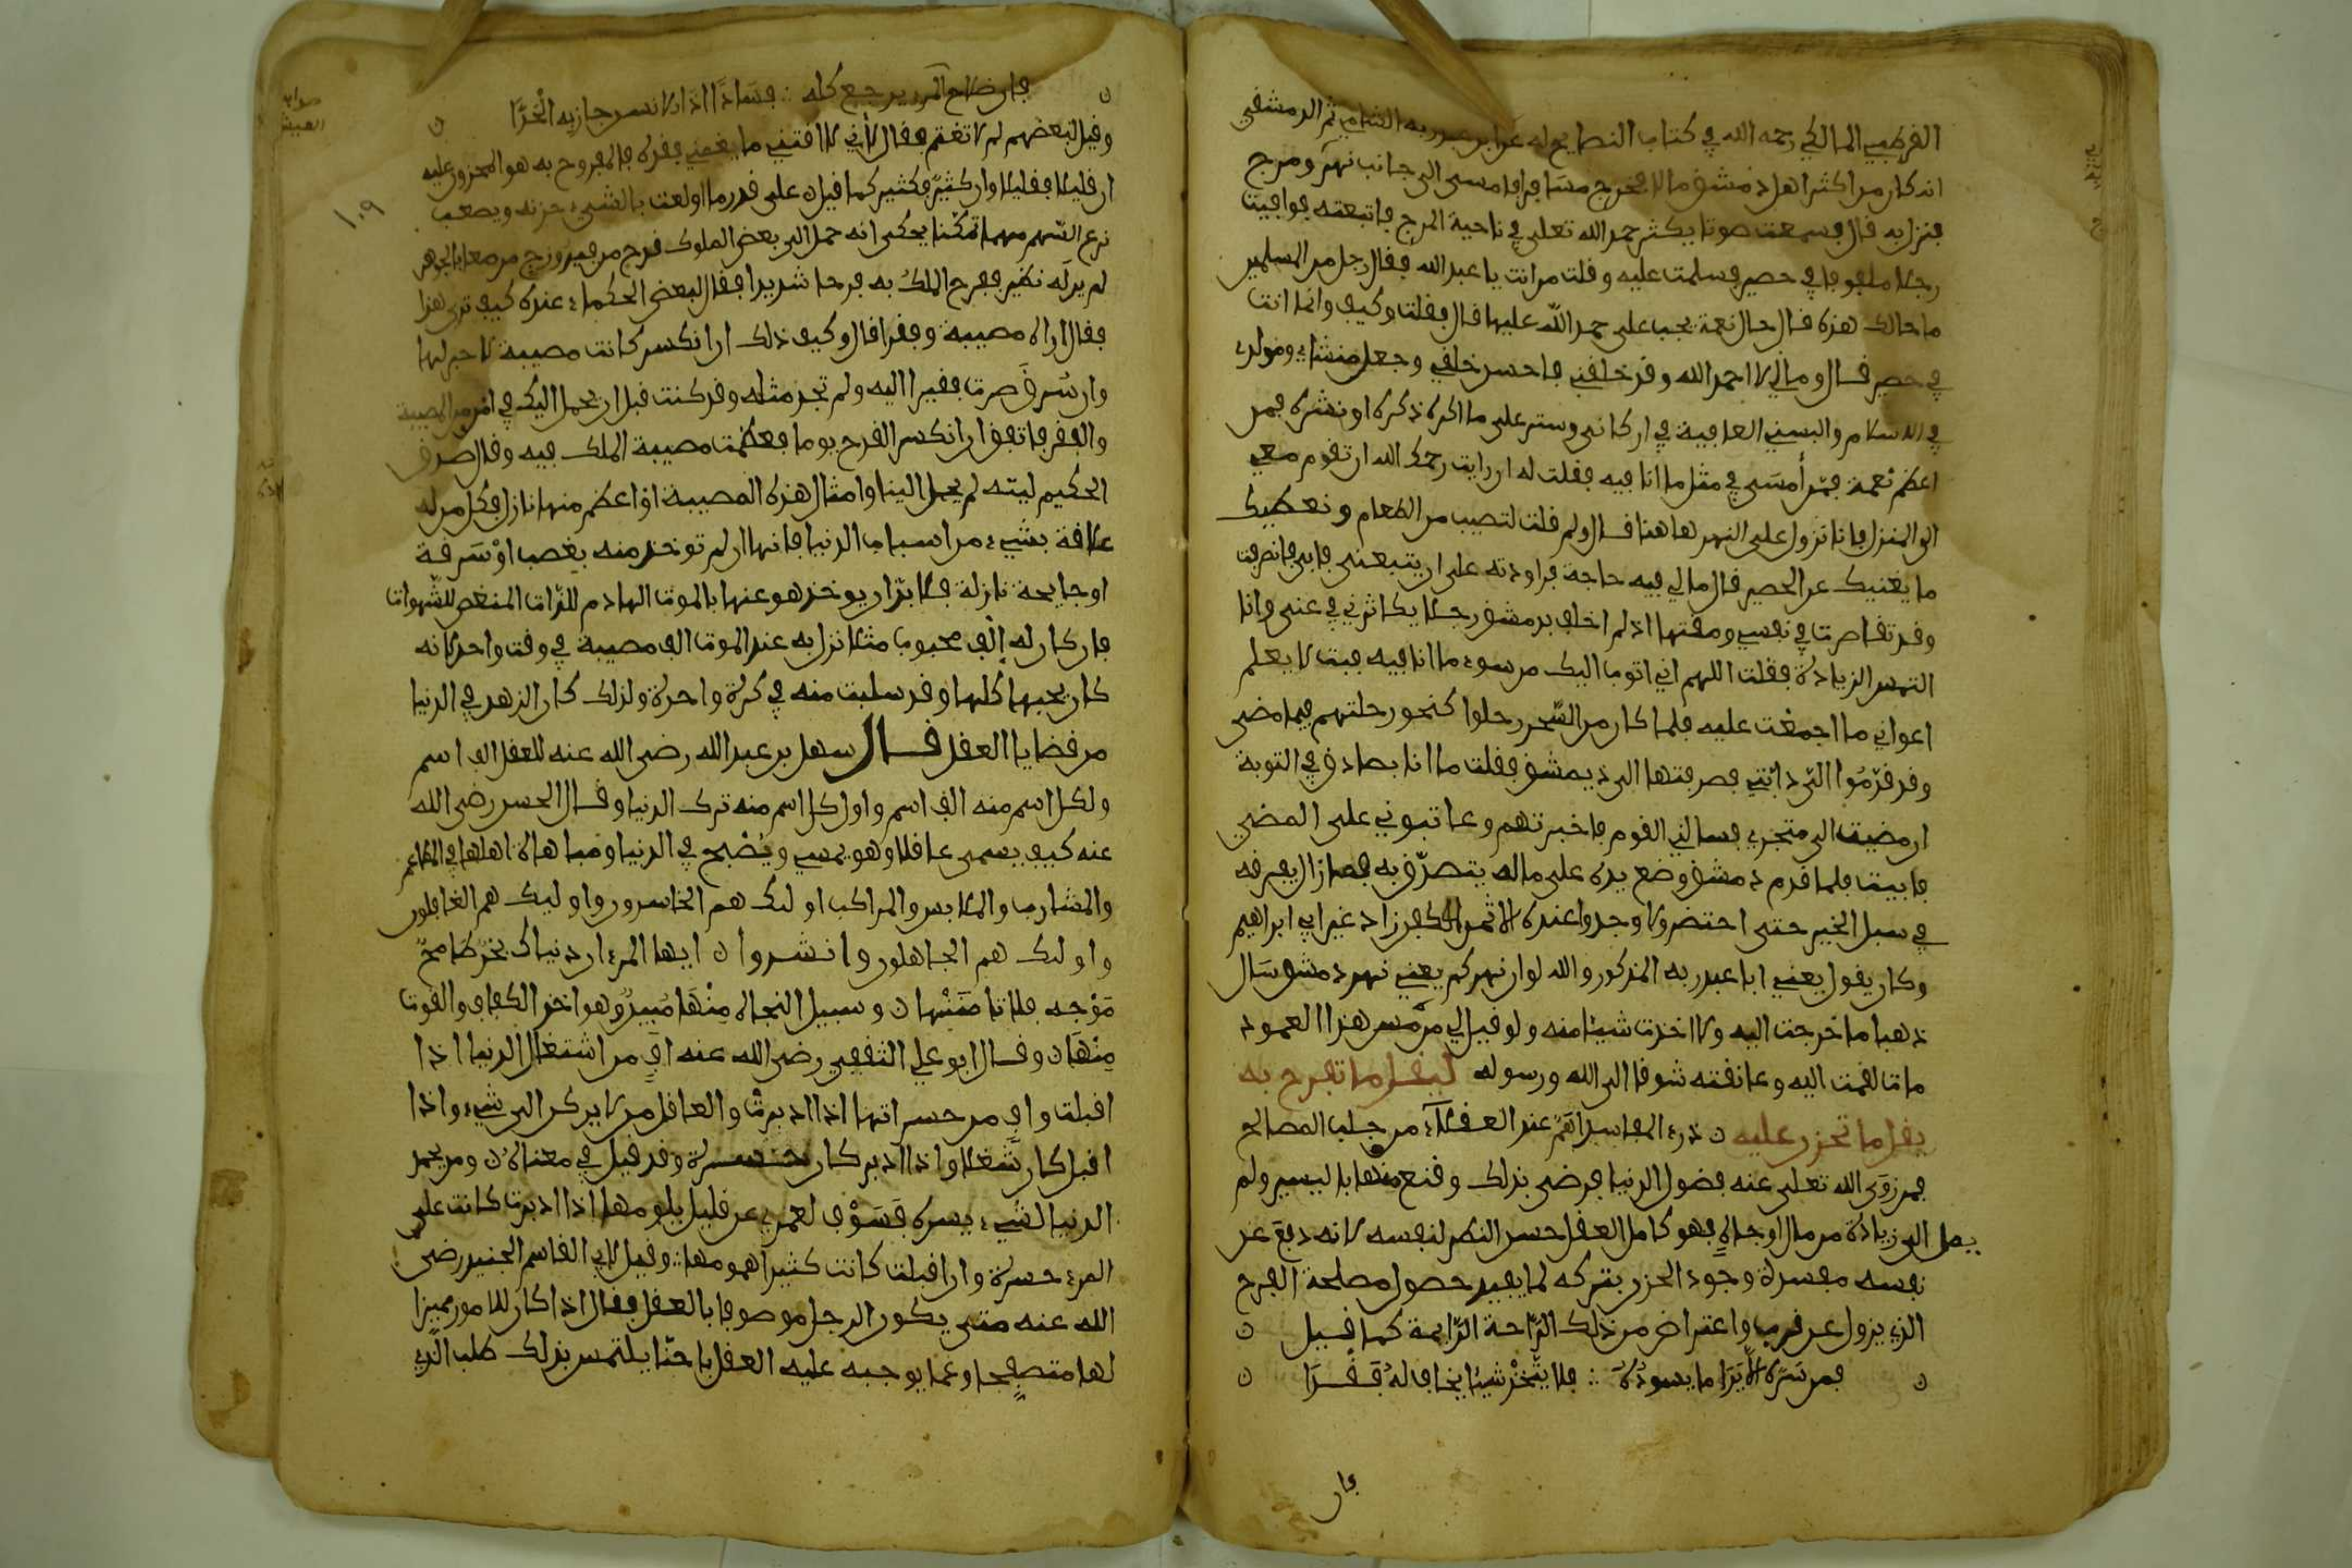 القرطبي المالكي رحمه الله في كتاب النصايح له عن ابن عبد ربه الشامي ثم الدمشقي
انه كان من اكثر اهل دمشق مالا فخرج مسافرا فامسى الى جانب نهر ومرج
فنزل به قال فسمعت صوتا يكثر حمد الله تعلى في ناحية المرج فاتبعته فوافيت
رجلا ملفوفا في حصير فسلمت عليه وقلت من انت يا عبد الله فقال رجل من المسلمين
ما حالك هذه قال حال نعمة يجب على حمد الله عليها قال فقلت وكيف وانما انت
في حصير قال ومالي لا احمد الله وقد خلقني فاحسن خلقي وجعل منشاي ومولدي
في الاسلام والبسني العافية في اركاني وستر على ما اكره ذكره او نشره فمن
اعظم نعمة ممّن أمسَى في مثل ما انا فيه فقلت له ان رايت رحمك الله ان تقوم معي
الى المنزل فانا نزول على النهر هاهنا قال ولم قلت لتصيب من الطعام ونعطيك
ما يغنيك عن الحصير قال مالي فيه حاجة فراودته على ان يتبعني فابى فانصرفت
وقد تقاصرت في نفسي ومقتها اذ لم اخلف بدمشق رجلا يكاثرني في غنى وانا
التمس الزيادة فقلت اللهم اني اتوب اليك من سوء ما انا فيه فبت لا يعلم
اعواني ما اجمعت عليه فلما كان من السّحر رحلوا كنحو رحلتهم فيما مضى
وقد قدّمُوا الىّ دابّتي فصرفتها الى دمشق فقلت ما انا بصادق في التوبة
ان مضيت الى متجري فسالني القوم فاخبرتهم وعاتبوني على المضي
فابيت فلما قدم دمشق وضع يده على ماله يتصرّف به فما زال يفرقه
في سبل الخير حتى احتضر ولا وجدوا عنده الا ثمن الكفن زاد غير ابي ابراهيم
وكان يقول يعني ابا عبد ربه المذكور والله لو ان نهركم يعني نهر دمشق سَال
ذهبا ما خرجت اليه ولا اخذت شيئا منه ولو قيل لي من مّس هذا العمود
مات لقمت اليه وعانقته شوقا الى الله ورسوله ليقل ما تفرح به
يقل ما تحزن عليه ن درء المفاسد اهمّ عند العقلآء من جلب المصالح
فمن زوَى الله تعلى عنه فضول الدنيا فرضي بذلك وقنع منها باليسير ولم
يمل الى زيادة من مال او جاهٍ فهو كامل العقل حسن النظر لنفسه لانه دفع عن
نفسه مفسدة وجود الحزن بتركه لما يفيد حصول مصلحة الفرح
الذي يزول عن قرب واعتراض من ذلك الرّاحة الدّايمة كما قيل ن
ن فمن سَرّه الاّ يَرَا ما يسوءُهُ ∴ فلا يتّخذْ شيئا يخاف لهُ فَقْدَا ن
فان
ن فان صلاح المرء يرجع كله ∴ فسَادًا اذا الانسان جاز به الْحَدَّا ن
وقيل لبعضهم لم لا تغتم فقال لأني لا اقتني ما يغمني فقده فالمفروح به هو المحزون عليه
ان قليلا فقليلا وان كثيرًا فكثير كما قيل ن على قدر ما اولعت بالشيء حزنه ويصعب
نزع السّهم مهما تمكّنا يحكى انه حمل الى بعض الملوك قدح من فيروزج مرصعا بالجوهر
لم ير له نظير ففرح الملكُ به فرحا شديدا فقال لبعض الحكماء عنده كيف ترى هذا
فقال اراه مصيبة وفقرا قال وكيف ذلك ان انكسر كانت مصيبة لا جبر لها
وان سُرق صرت فقيرا اليه ولم تجد مثله وقد كنت قبل ان يحمل اليك في امن من المصيبة
والفقر فاتفق ان انكسر القدح يوما فعظمت مصيبة الملك فيه وقال صدق
الحكيم ليته لم يحمل الينا وامثال هذه المصيبة او اعظم منها نازل بكل من له
علاقة بشيء من اسباب الدنيا فانها ان لم توخذ منه بغصب اوْ سَرقة
او جايحة نازلة فلا بدّ ان يوخذ هو عنها بالموت الهادم للذات المنغص للشّهوات
فان كان له إلْف محبوب مثلا نزل به عند الموت الف مصيبة في وقت واحد لانه
كان يحبها كلها وقد سلبت منه في كرة واحدة ولذلك كان الزهد في الدنيا
من قضايا العقل قال سهل بن عبد الله رضى الله عنه للعقل الف اسم
ولكل اسم منه الف اسم واول كل اسم منه ترك الدنيا وقال الحسن رضى الله
عنه كيف يسمى عاقلا وهو يمسي ويُصْبح في الدنيا ومباهاة اهلها في المطاعم
والمشارب والملابس والمراكب اولئك هم الخاسرون واوليك هم الغافلون
واولئك هم الجاهلون وانشدوا ن ايها المرء ان دنياك بحْر طامحٌ
مَوْجه فلا تامَنَنْها ن وسبيل النجاة مِنْهَا مُبينٌ وهو اخذ الكفاف والقوت
مِنْهَا ن وقال ابو علي الثقفي رضى الله عنه افٍ من اشتغال الدنيا اذا
اقبلت واف من حسراتها اذا ادبرتْ والعاقل من لا يركن الى شيء واذا
اقبل كان شُغلا واذا ادبر كان حسرة وقد قيل في معناه ن ومن يحمد
الدنيا لشيء يسره فَسَوْف لعمري عن قليل يلومها اذا ادبرت كانت على
المرء حسرة وان اقبلت كانت كثيرا همومها ∴ وقيل لابي القاسم الجنيد رضى
الله عنه متى يكون الرجل موصوفا بالعقل فقال اذا كان للامور مميزا
لها متصفحا وعما يوجبه عليه العقل باحثا يلتمس بذلك طلب الّذي
١٠٩